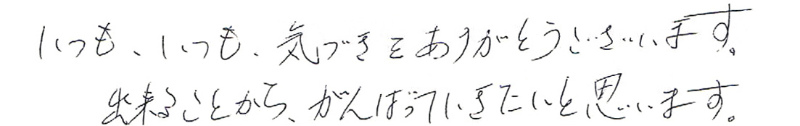 いつも、いつも、気づきをありがとうございます。
出来ることから、がんばっていきたいと思います。